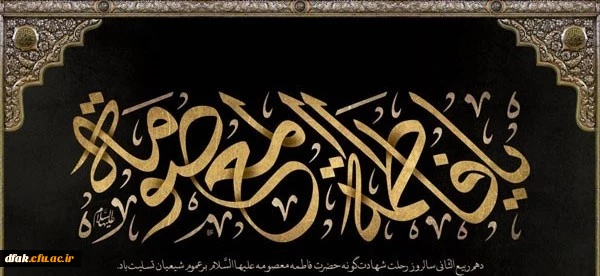 یا فاطمة المعصومة
علیها السلام
دهم ربیع الثانی سالروز رحلت شهادت‌گونه حضرت فاطمه معصومه علیها السّلام بر عموم شیعیان تسلیت باد.
dfak.cfu.ac.ir